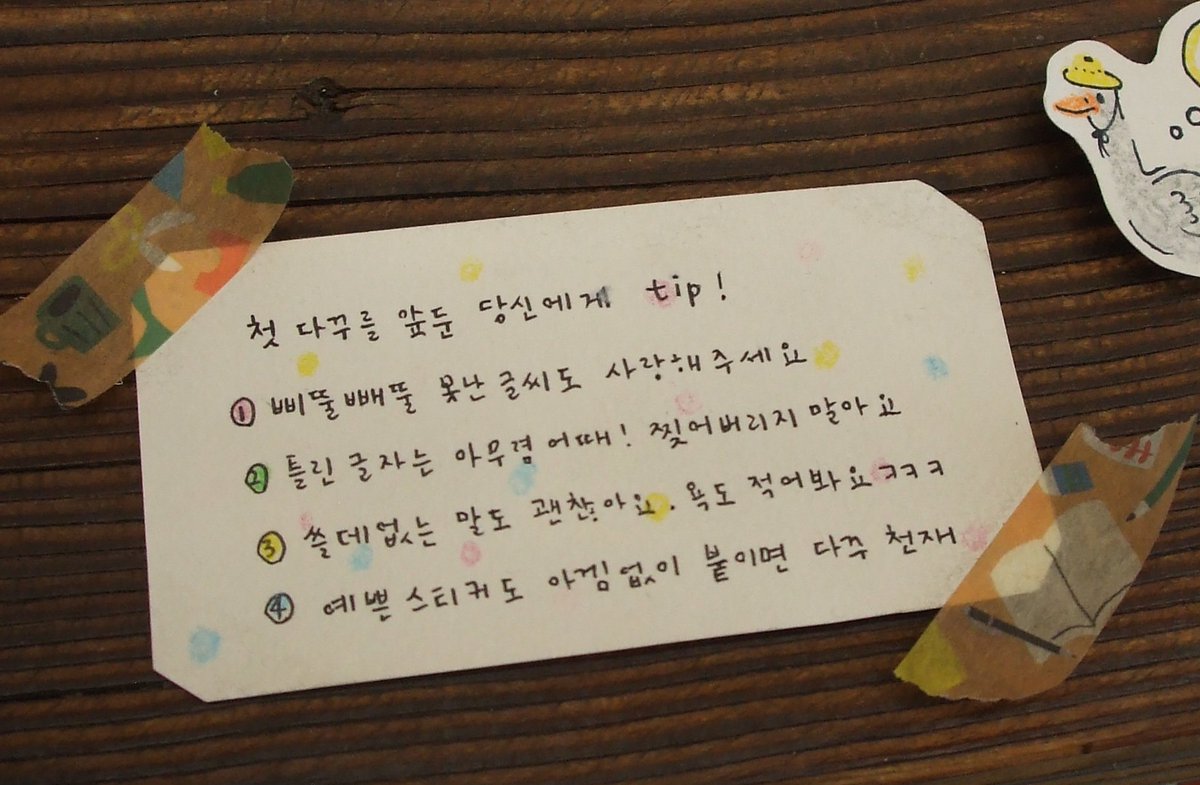 첫 다꾸를 앞둔 당신에게 tip!
① 삐뚤빼뚤 못난 글씨도 사랑해주세요
② 틀린 글자는 아무렴 어때! 찢어버리지 말아요
③ 쓸데없는 말도 괜찮아요. 욕도 적어봐요ㅋㅋㅋ
④ 예쁜 스티커도 아낌없이 붙이면 다꾸 천재